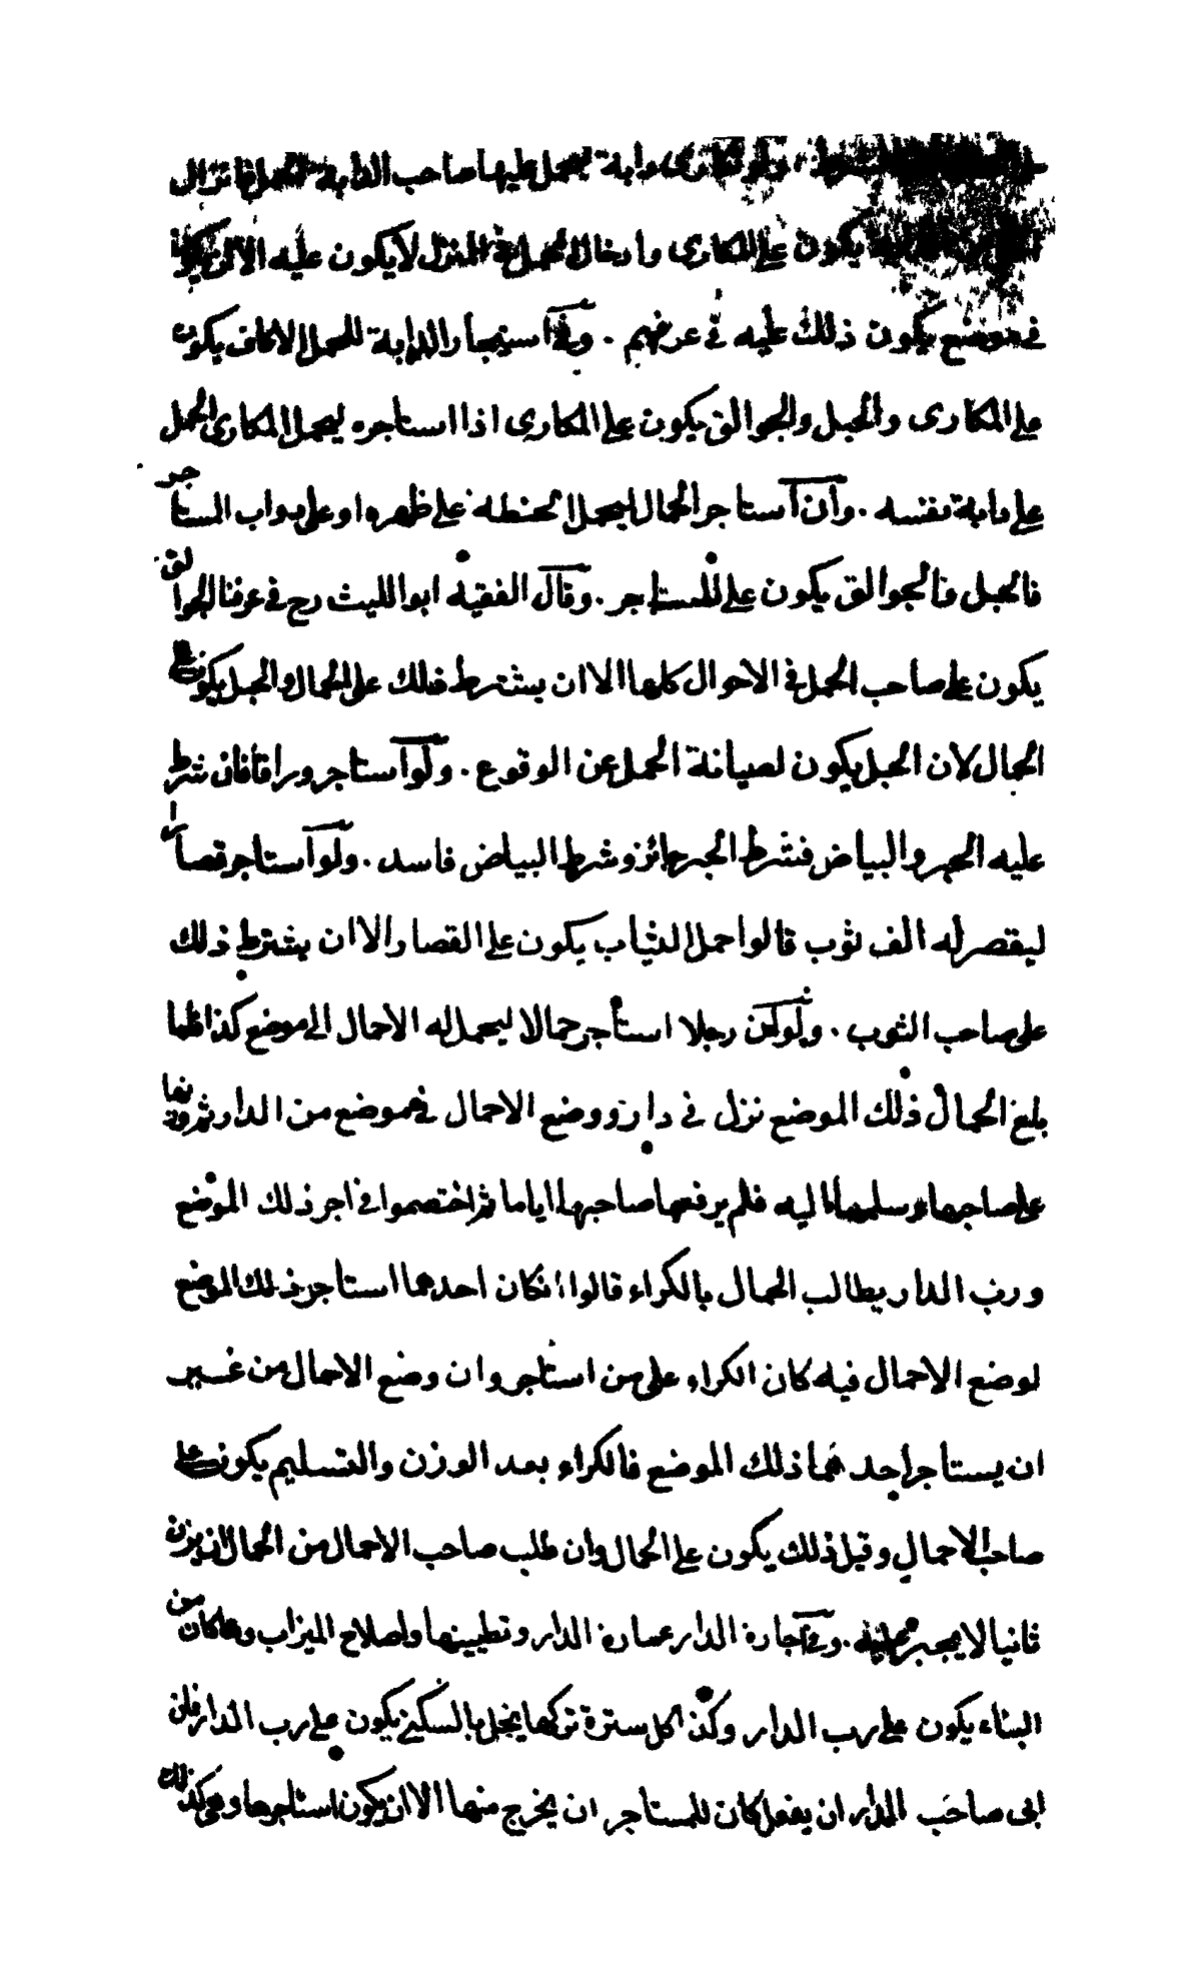 ولو تكارى دابة ليحمل عليها صاحب الدابة الحمل فانزال
يكون على المكارى وادخال الحمل فى المنزل لا يكون عليه الا ان يكون
فى موضع يكون ذلك عليه فى عرفهم . وفى استيجار الدابة للحمل الاكاف يكون
على المكارى والحبل والجوالق يكون على المكارى اذا استاجره ليحمل المكارى الحمل
على دابة نفسه . وان استاجر الحمال ليحمل الحنطة على ظهره او على دواب المستاجر
فالحبل فالجوالق يكون على المستاجر . وقال الفقيه ابوالليث رح فى عرفنا الجوالق
يكون على صاحب الحمل فى الاحوال كلها الا ان يشترط ذلك على الحمال والحبل يكون على
الحمال لان الحبل يكون لصيانة الحمل عن الوقوع . ولو استاجر وراقا فان شرط
عليه الحبر والبياض فشرط الحبر جائز وشرط البياض فاسد . ولو استاجر قصارا
ليقصر له الف ثوب قالوا حمل الثياب يكون على القصار الا ان يشترط ذلك
على صاحب الثوب . ولو ان رجلا استأجر حمالا ليحمل له الاحمال الى موضع كذا فلما
بلغ الحمال ذلك الموضع نزل فى دار ووضع الاحمال فى موضع من الدار ثم وزنها
على صاحبها وسلمها اليه فلم يرفعها صاحبها اياما ثم اختصموا فى اجر ذلك الموضع
ورب الدار يطالب الحمال بالكراء قالوا ان كان احدهما استاجر ذلك الموضع
لوضع الاحمال فيه كان الكراء على من استاجر وان وضع الاحمال من غير
ان يستاجر احدهما ذلك الموضع فالكراء بعد الوزن والتسليم يكون على
صاحب الاحمال وقبل ذلك يكون على الحمال وان طلب صاحب الاحمال من الحمال ان يزن
ثانيا لا يجبر عليه . وفى اجارة الدار عمارة الدار وتطيينها واصلاح الميزاب وما كان من
البناء يكون على رب الدار وكذا كل سترة تركها يخل بالسكنى يكون على رب الدار فان
ابى صاحب الدار ان يفعل كان للمستاجر ان يخرج منها الا ان يكون استاجرها وهى كذلك